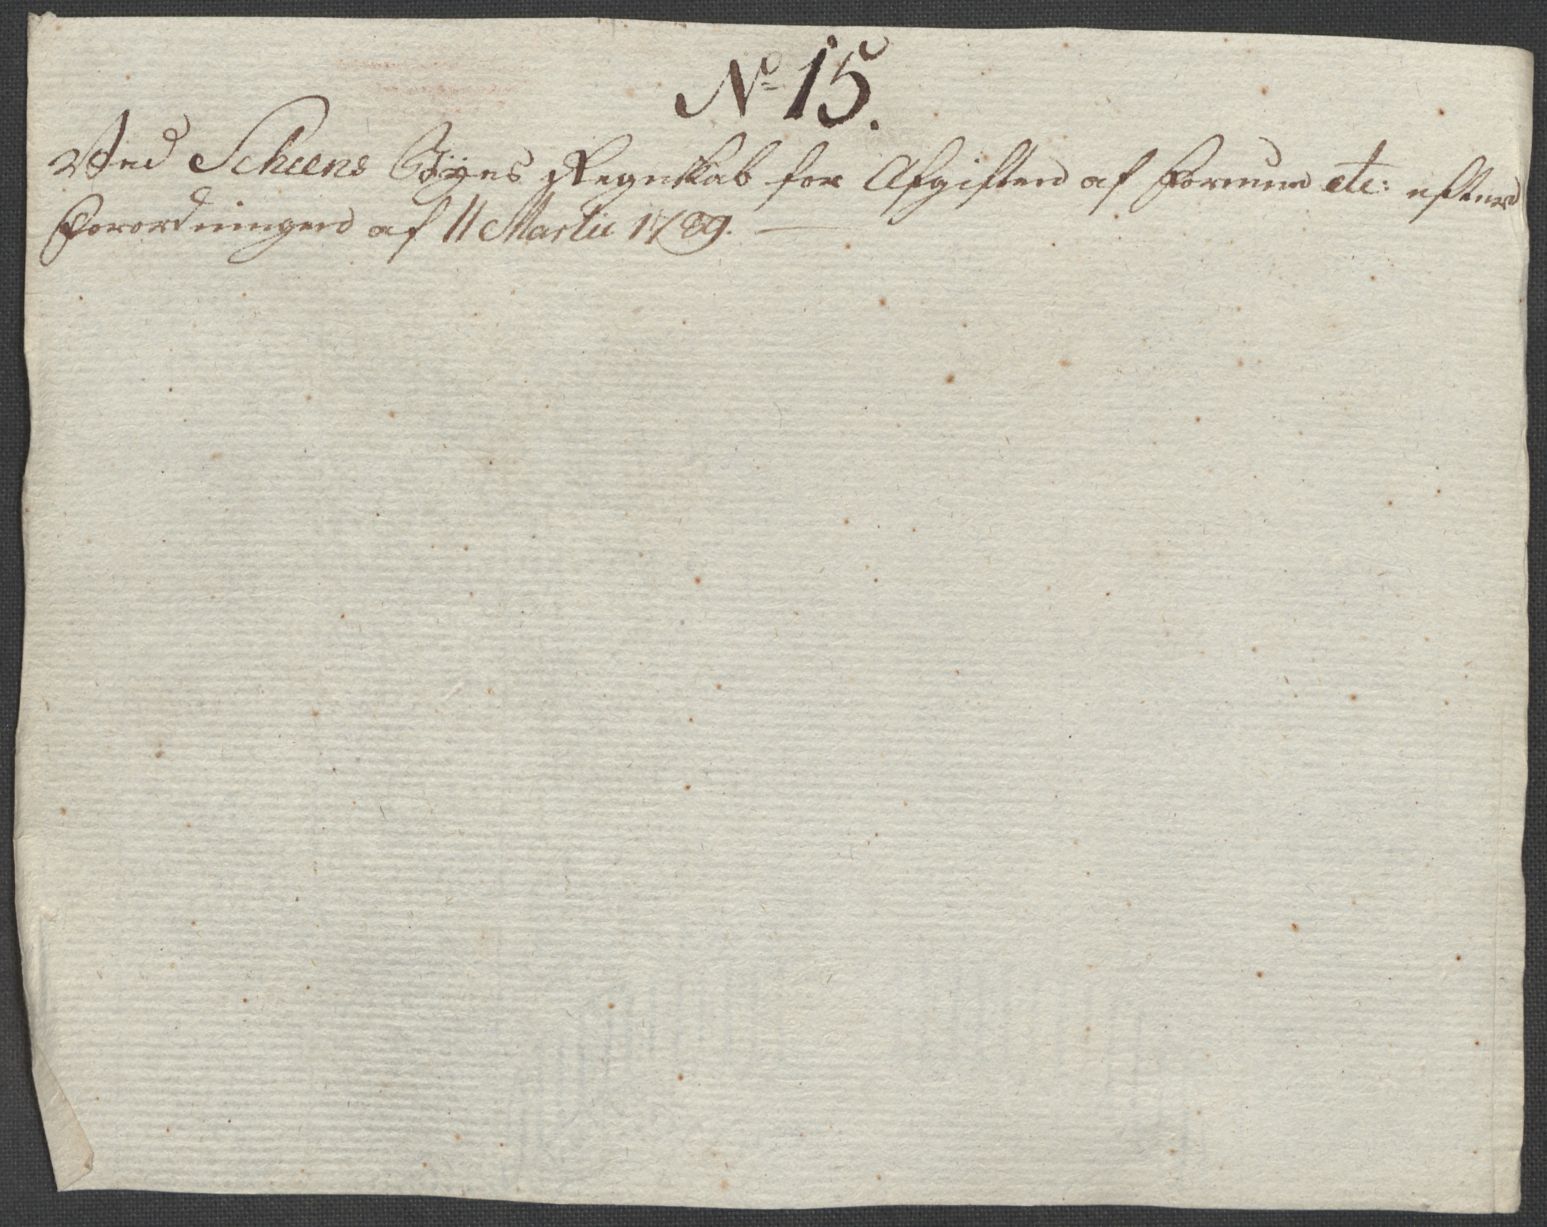 No 15.
Ved Schiens Byes Regnskab for Afgiften af Formue etc: efter
Forordningen af 11 Martii 1789.